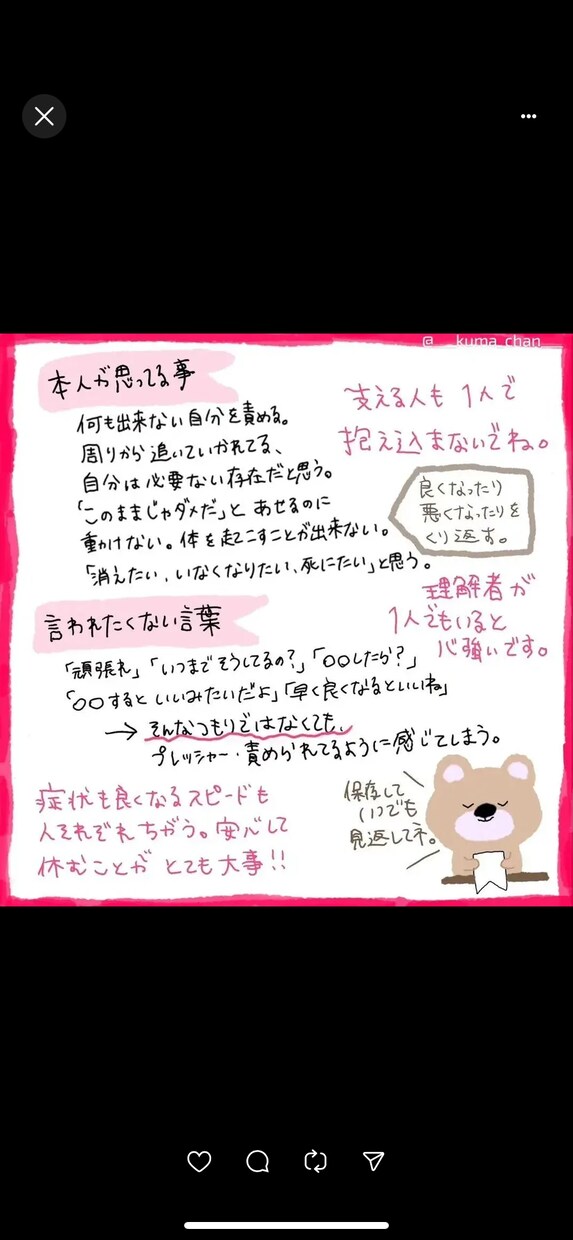 @__kuma_chan
本人が思ってる事
何も出来ない自分を責める。
周りから追いていかれてる、
自分は必要ない存在だと思う。
「このままじゃダメだ」と あせるのに
動けない。体を起こすことが出来ない。
「消えたい、いなくなりたい、死にたい」と思う。
支える人も 1人で
抱え込まないでね。
良くなったり
悪くなったりを
くり返す。
理解者が
1人でもいると
心強いです。
言われたくない言葉
「頑張れ」「いつまでそうしてるの?」「〇〇したら?」
「〇〇すると いいみたいだよ」「早く良くなるといいね」
→ そんなつもりではなくても、
プレッシャー・責められてるように感じてしまう。
症状も良くなるスピードも
人それぞれちがう。安心して
休むことが とても大事!!
保存して
いつでも
見返してネ。